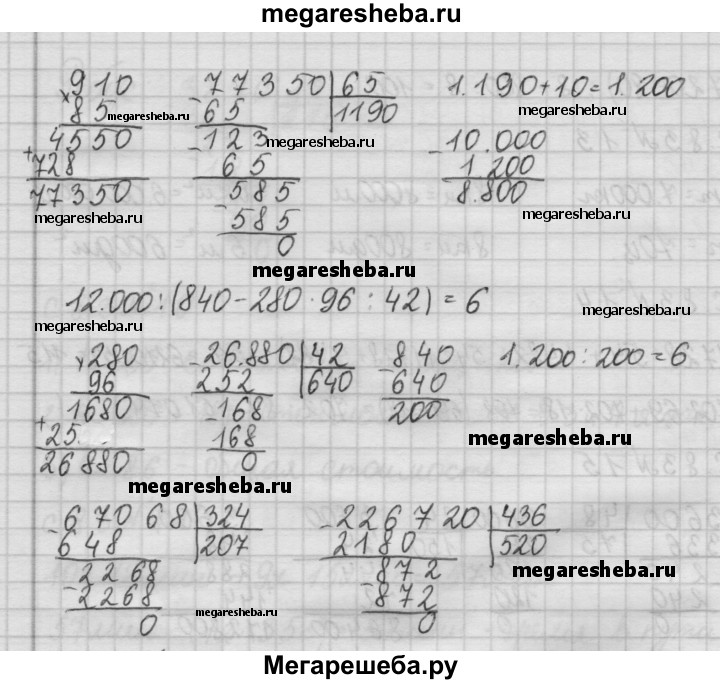 megaresheba.ru
910 77350 65 1.190+10=1.200
× 85 megaresheba.ru - 65 1190 megaresheba.ru
4550 - 123 - 10.000
+ 728 65 1.200
77350 - 585 8.800
megaresheba.ru - 585 megaresheba.ru
0
megaresheba.ru
12.000:(840-280·96:42)=6 megaresheba.ru
megaresheba.ru
× 280 - 26.880 42 - 840 1.200:200=6
96 252 640 640
1680 - 168 200
+ 25 168 megaresheba.ru
26880 0
megaresheba.ru
- 67068 324 - 226720 436
648 207 2180 520
- 2268 - 872 megaresheba.ru
2268 megaresheba.ru 872
0 0
Мегарешеба.ру